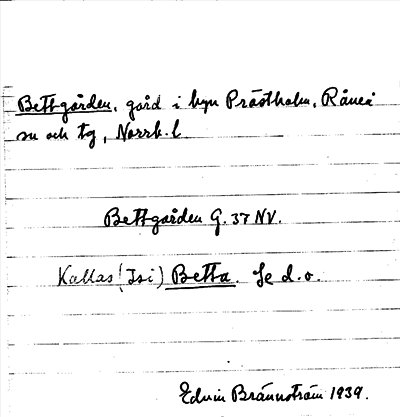 Bettgården, gård i byn Prästholm, Råneå
sn och tg, Norrb. l.
Bettgården G. 37 NV.
Kallas (Isi) Betta. Se d. o.
Edvin Brännström 1939.